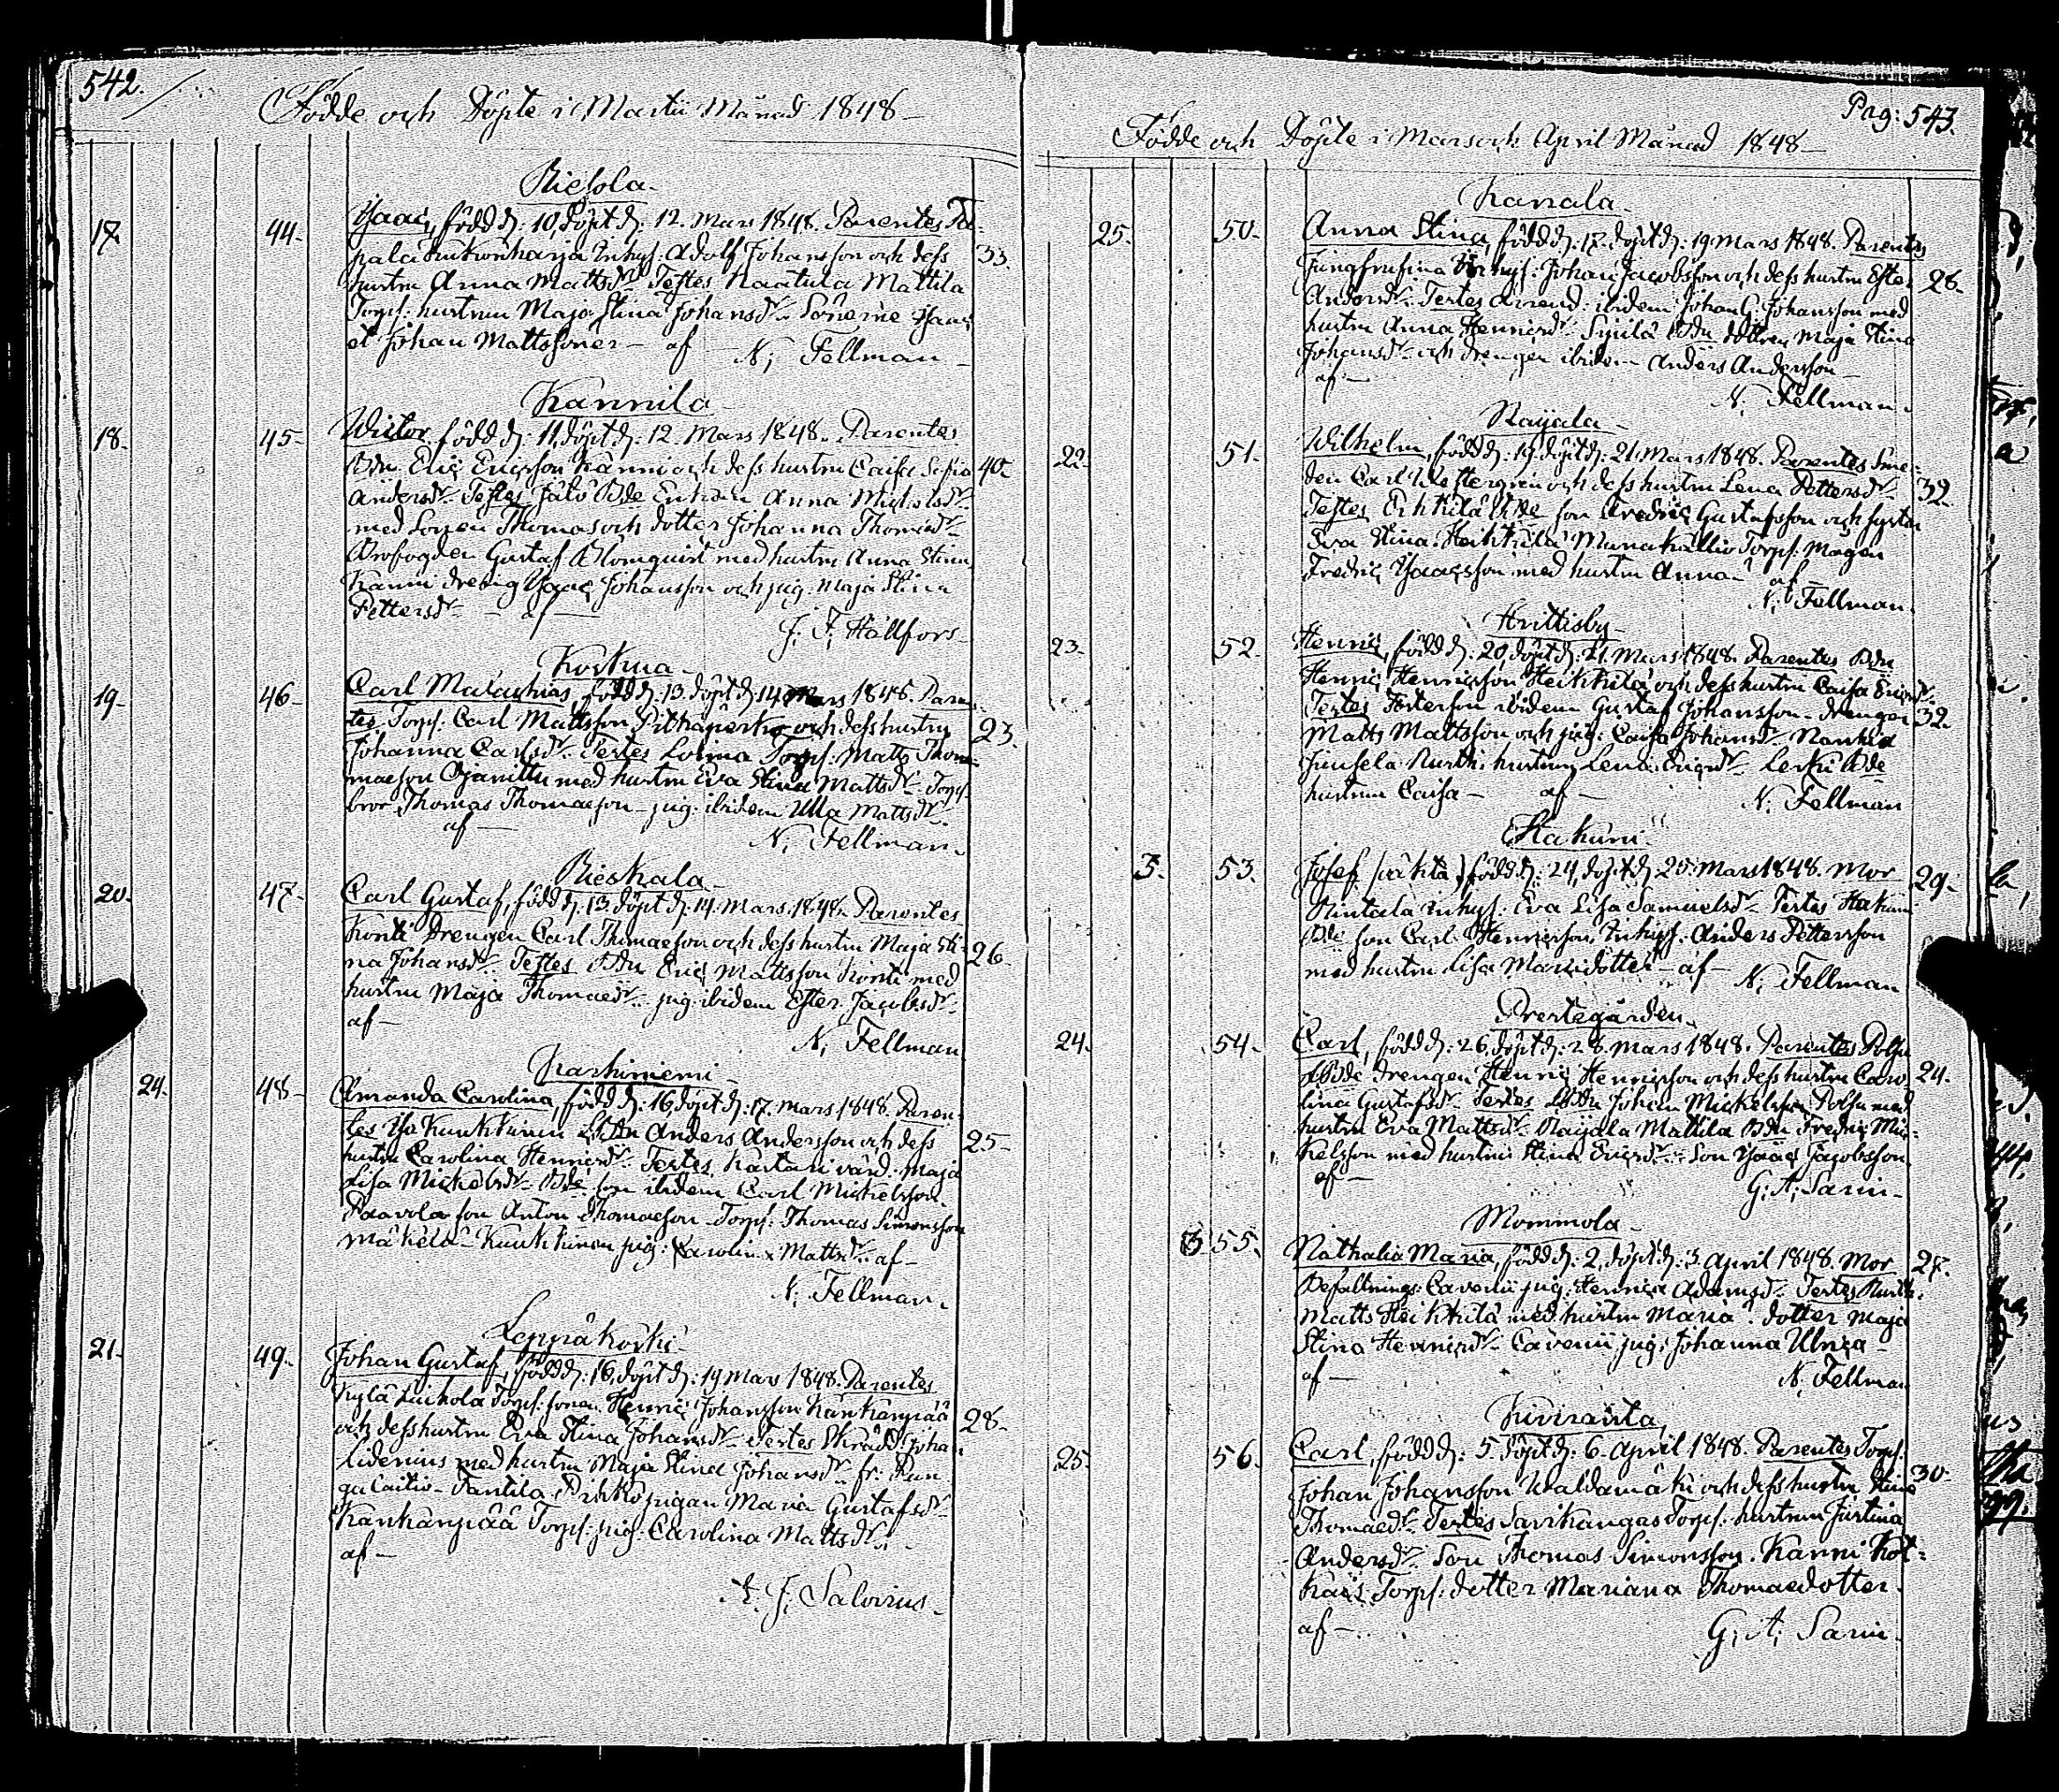 542.
Födde och Döpte i Martii Månad 1848
17. 44. Isaac, född d: 10, döpt d: 12. Mars 1848. Parentes
Inhys: Adolf Johansson och dess 33.
hustru Anna Mattsdr. Testes Naatula Mattila
Torp: hustrun Maja Stina Johansdr. Sönerne Isaac
et Johan Mattssöner – af – N; Fellman
Kannila
18. 45. Victor född d: 11, döpt d: 12. Mars 1848. Parentes
Bdn Eric Ericsson Kanni och dess hustru Caisa Sofia 40.
Andersdr. Testes Bde Enkan Anna Michelsdr.
med Sonen Thomas och dotter Johanna Thomaedr.
Brofogden Gustaf Blomquist med hustru Anna Stina,
Kanni dreng Isaac Johansson och pig: Maja Stina
Pettersdr. – af –
J. F. Hällfors
Korkua
19. 46. Carl Malachias, född d: 13. döpt d. 14 Mars 1848. Paren-
tes Torp: Carl Mattsson och dess hustru 23.
Johanna Carlsdr. Testes Torp: Matts Thom-
maeson Ojanittu med hustru Eva Stina Mattsdr. Torp:
bror Thomas Thomaeson – pig: ibidem Ulla Mattsdr.
af –
N; Fellman.
Rieskala
20. 47. Carl Gustaf, född d. 13. döpt d. 14. Mars 1848. Parentes
Konti Drengen Carl Thomaeson och dess hustru Maja Sti- 26.
na Johansdr. Testes Bdn Eric Mattsson Konti med
hustru Maja Thomaedr. pig: ibidem Ester Jacobsdr.
af –
N; Fellman
Karhiniemi
24. 48. Amanda Carolina, född d: 16, döpt d: 17. Mars 1848. Paren-
tes Iso Kuukkinen Bdn Anders Andersson och dess 25.
hustru Carolina Henricsdr. Testes Kartari värd: Maja
Lisa Michelsdr. Bde son ibidem Carl Michelsson
Paavola son Anton Thomaeson Torp: Thomas Simonsson
Mäkelä – Kuukkinen pig: Carolina Mattsdr. af –
N; Fellman.
Leppäkoski
21. 49. Johan Gustaf, född d: 16, döpt d: 19 Mars 1848. Parentes
Kylä Liuhola Torp: sonen Henric Johansson Kankanpää 28.
och dess hustru Eva Stina Johansdr. Testes Skrädd: Johan
Lidenius med hustru Maja Stina Johansdr. fr:
Tantila pigan Maria Gustafsdr.
Kankanpää Torp: pig: Carolina Mattsdr.
af –
J; Salovius.
Pag: 543.
Födde och Döpte i Mars och April Månad 1848
Kanala
25. 50. Anna Stina, född d: 17. döpt d: 19 Mars 1848. Parentes
Inhys: Johan Jacobsson och dess hustru Ester 26.
Andersdr. Testes Arrend: ibidem Johan G. Johansson med
hustru Anna Henricsdr. Bdn dottren Maja Stina
Johansdr. och drengen ibidem Anders Andersson
af –
N. Fellman.
Raijala
22. 51. Wilhelm, född d: 19. döpt d: 21 Mars 1848. Parentes Sme-
den Carl Westergren och dess hustru Lena Pettersdr. 32.
Testes Erkkilä Bde son Fredric Gustafsson och syster
Eva Stina. Heikkilä Munakallio Torp: Magen
Fredric Isaacsson med hustru Anna. af
N; Fellman.
Huittisby
23. 52. Henric, född d: 20, döpt d: 21. Mars 1848. Parentes Bdn
Henric Henricsson Heikkilä och dess hustru Caisa Ericsdr.
Testes ibidem Gustaf Johansson – drengen 32.
Matts Mattsson och pig: Caisa Johansdr.
hustrun Lena Ericsdr. Lerki Bde
hustrun Caisa – af –
N; Fellman
Hakuni
3. 53. Josef (oäkta) född d: 24, döpt d. 25 Mars 1848. Mor 29.
Rintala Inhys: Eva Lisa Samuelsdr. Testes Hakuni
Bde son Carl Henricsson, Inhys: Anders Pettersson
med hustru Lisa – af – N; Fellman
Prestegården
24. 54. Carl, född d: 26, döpt d: 28. Mars 1848. Parentes
Bde drengen Henric Henricsson och dess hustru Caro- 24.
lina Gustafsdr. Testes Bdn Johan Mickelsson med
hustru Eva Mattsdr. Raijala Mattila Bdn Fredric Mic-
kelsson med hustru Stina Ericsdr. Son Isaac Jacobsson.
af –
G; A; Sarin.
Mommola
5 55. Nathalia Maria, född d: 2, döpt d: 3. April 1848. Mor 27.
Befallnings: Cavenii pig: Henrica Adamsdr. Testes
Matts Heikkilä med hustru Maria. dotter Maja
Stina Henricsdr. Cavenii pig: Johanna Ulrica
af –
N, Fellman
Kiviranta
25. 56. Carl, född d: 5. döpt d: 6. April 1848. Parentes Torp:
Johan Johansson Waldamäki och dess hustru Stina 30.
Thomaedr. Testes Sarikangas Torp: hustrun Justina
Andersdr. Son Thomas Simonsson. Kanni
Torp: dotter Mariana Thomaedotter.
af –
G; A; Sarin.